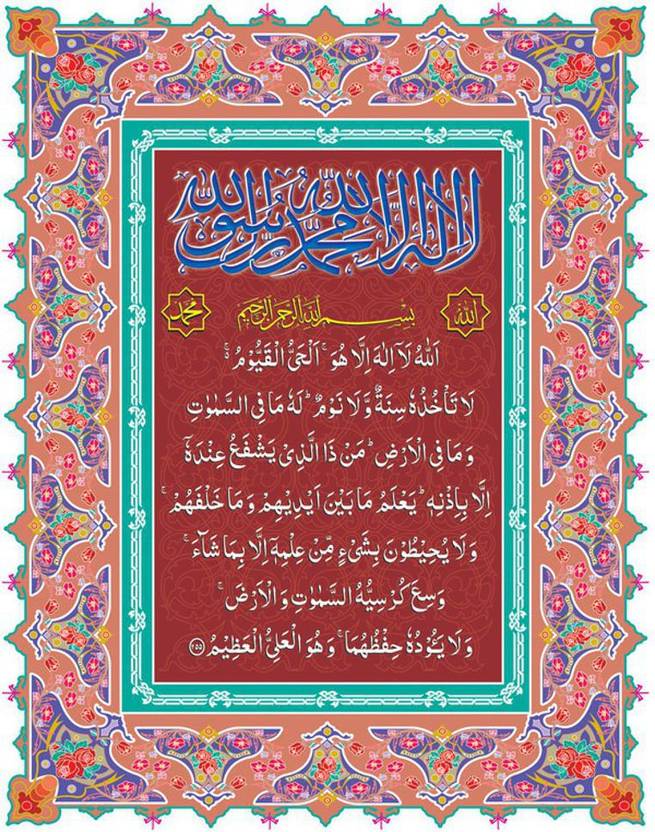 لا اله الا الله محمد رسول الله
الله
بسم الله الرحمن الرحيم
محمد
اَللهُ لَآ اِلٰهَ اِلَّا هُوَ ۚ اَلْحَیُّ الْقَیُّوْمُ ۚ
لَا تَاْخُذُهٗ سِنَةٌ وَّلَا نَوْمٌ ؕ لَهٗ مَا فِی السَّمٰوٰتِ
وَمَا فِی الْاَرْضِ ؕ مَنْ ذَا الَّذِیْ یَشْفَعُ عِنْدَهٗۤ
اِلَّا بِاِذْنِهٖ ؕ یَعْلَمُ مَا بَیْنَ اَیْدِیْهِمْ وَمَا خَلْفَهُمْ ۚ
وَلَا یُحِیْطُوْنَ بِشَیْءٍ مِّنْ عِلْمِهٖۤ اِلَّا بِمَا شَآءَ ۚ
وَسِعَ کُرْسِیُّهُ السَّمٰوٰتِ وَالْاَرْضَ ۚ
وَلَا یَـُٔوْدُهٗ حِفْظُهُمَا ۚ وَهُوَ الْعَلِیُّ الْعَظِیْمُ ﴿۲۵۵﴾